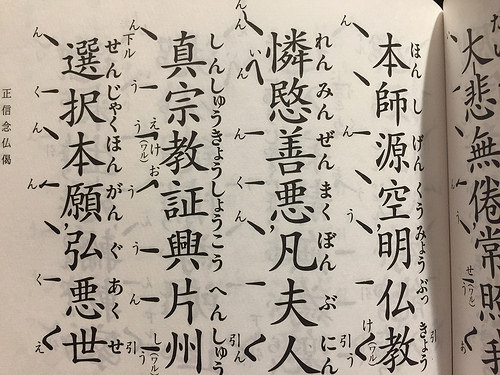 大悲無倦常照
本師源空明仏教
ほんしげんくうみょうぶっきょう
憐愍善悪凡夫人
れんみんぜんまくぼんぶにん
真宗教証興片州
しんしゅうきょうしょうこうへんしゅう
選択本願弘悪世
せんじゃくほんがんぐあくせ
正信念仏偈